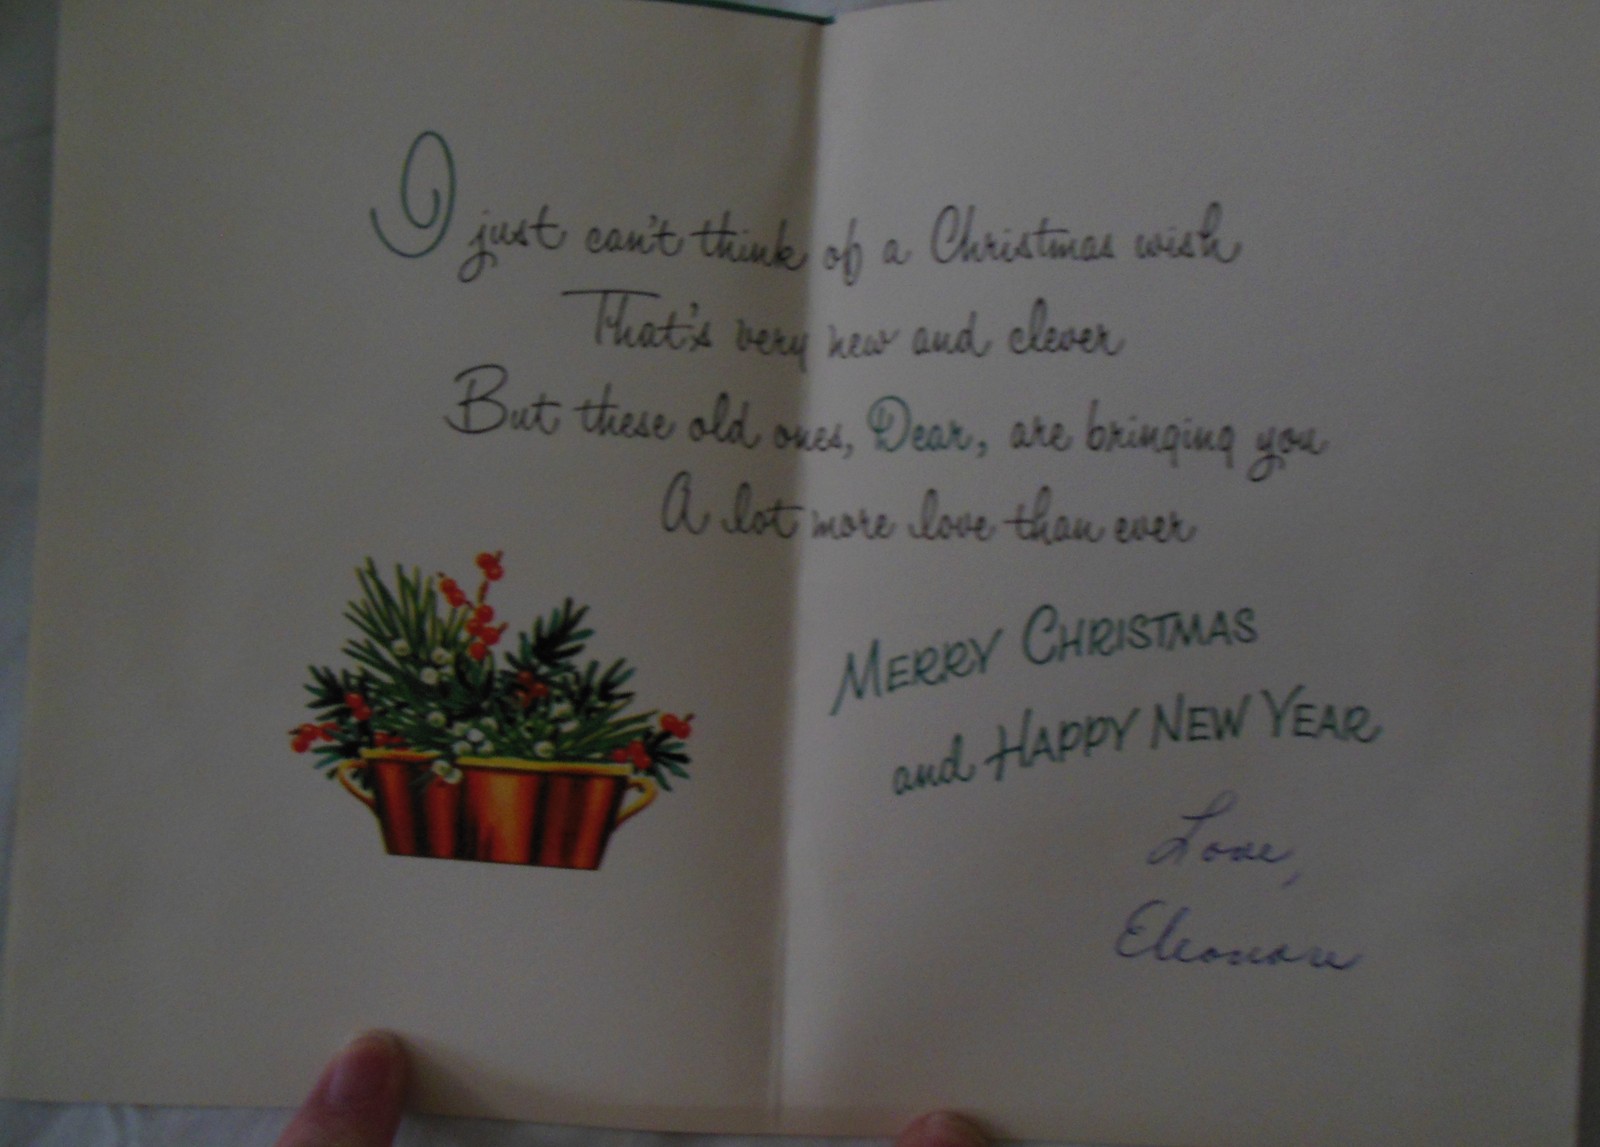 I just can't think of a Christmas wish
That's very new and clever
But these old ones, Dear, are bringing you
A lot more love than ever
MERRY CHRISTMAS
and HAPPY NEW YEAR
Love,
Eleonore